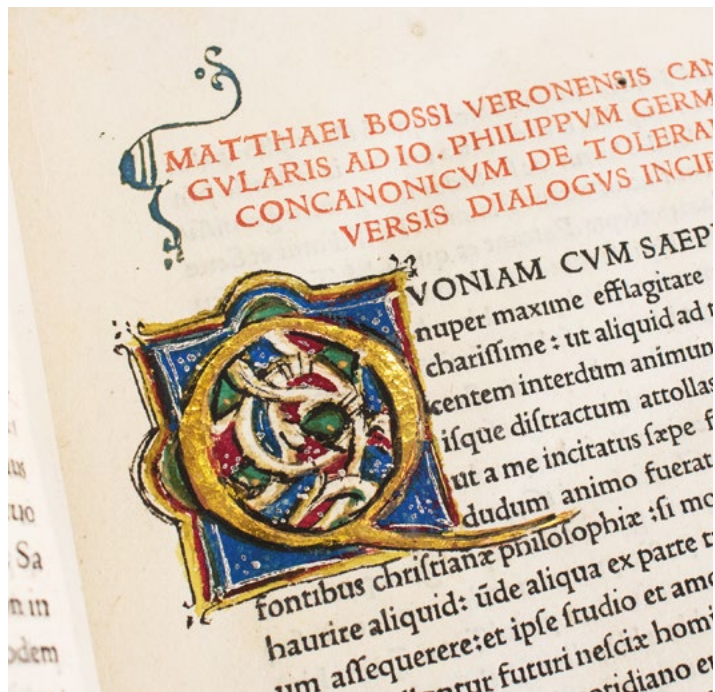 MATTHAEI BOSSI VERONENSIS CAN
GVLARIS AD IO. PHILIPPVM GERM
CONCANONICVM DE TOLERAN
VERSIS DIALOGVS INCIP
QVONIAM CVM SAEPE
nuper maxime efflagitare
chariſſime : ut aliquid ad
centem interdum animum
iſque diſtractum attollas
ut a me incitatus ſæpe
dudum animo fuerat
fontibus chriſtianæ philoſophiæ :ſi mo
haurire aliquid: ūde aliqua ex parte
um aſſequerere:et ipſe ſtudio et amo
futuri neſciæ homi
uo
Sa
n in
odem